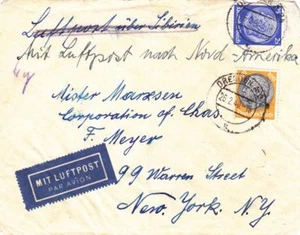 Luftpost über Sibirien
Mit Luftpost nach Nord-Amerika
Mister Marxsen
Corporation of Chas.
F. Meyer
99 Warren Street
New York. N. Y.
MIT LUFTPOST
PAR AVION
DRESDEN
26.2.